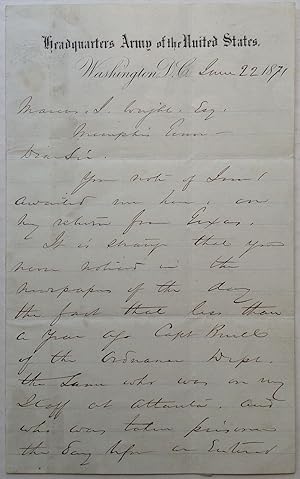 Headquarters Army of the United States.
Washington D.C. June 22 1871
Marcus. J. Wright. Esq.
Memphis Tenn—
Dear Sir.
Your note of June 1
awaited me here, on
my return from Texas.
It is strange that you
never noticed in the
newspapers of the day
the fact that less than
a year ago Capt Buell
of the Ordnance Dept.
the same who was on my
Staff at Atlanta. and
who was taken prisoner
the day before we Entered